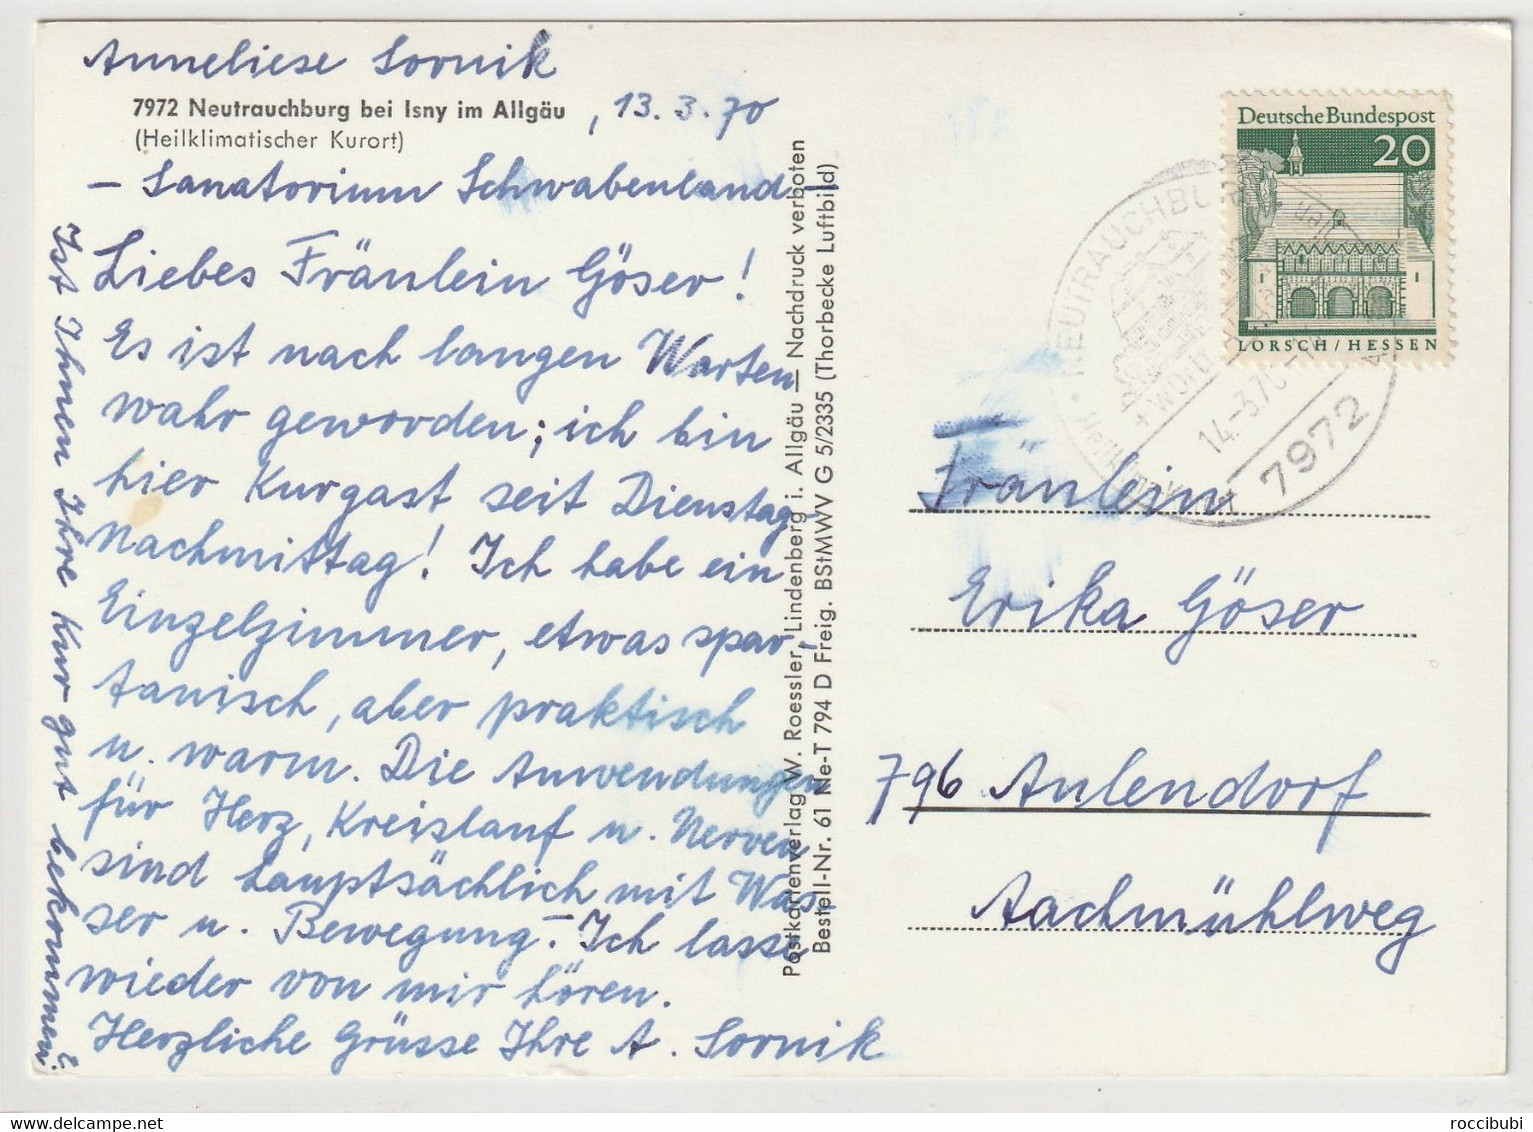 Anneliese Sornik
7972 Neutrauchburg bei Isny im Allgäu , 13.3.70
(Heilklimatischer Kurort)
– Sanatorium Schwabenland –
Liebes Fräulein Göser!
Es ist nach langen Warten
wahr geworden; ich bin
hier Kurgast seit Dienstag-
Nachmittag! Ich habe ein
Einzelzimmer, etwas spar-
tanisch, aber praktisch
u. warm. Die Anwendungen
für Herz, Kreislauf u. Nerven
sind hauptsächlich mit Was-
ser u. Bewegung. – Ich lasse
wieder von mir hören.
Herzliche Grüsse Ihre A. Sornik
Ist Ihnen Ihre Kur gut bekommen?
Postkartenverlag W. Roessler, Lindenberg i. Allgäu — Nachdruck verboten
Bestell-Nr. 61 Ne-T 794 D Freig. BStMWV G 5/2335 (Thorbecke Luftbild)
Deutsche Bundespost
20
LORSCH / HESSEN
NEUTRAUCHBURG
14.-3.70
7972
Fräulein
Erika Göser
796 Aulendorf
Aachmühlweg
roccibubi